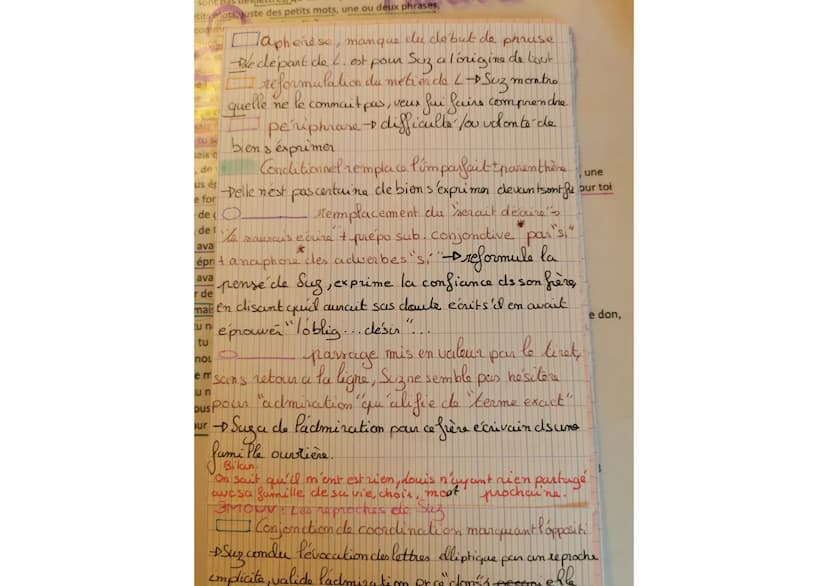 tit, mots, juste des petits mots, une ou deux phrases,
aphérèse, manque du début de phrase
départ de L. est pour Suz a l'origine de tout
reformulation du métier de L → Suz montre
quelle ne le connait pas, veux lui faire comprendre
périphrase → difficulté/ou volonté de
bien s'exprimer
Conditionnel remplace l'imparfait + parenthère
→ elle n'est pas certaine de bien s'exprimer devant son
, une
our toi
remplacement du "serait d'écrire" →
+ prépo sub. conjonctive par "si"
+ anaphore des adverbes "si" → reformule la
pensé de Suz, exprime la confiance ds son frère,
en disant qu'il aurait sas doute écrit s'il en avait
éprouver "l'oblig... désir"...
e don,
passage mis en valeur par le tiret,
sans retour a la ligne, Suz ne semble pas hésiter
pour "admiration" qu'alifie de "terme exact"
→ Suz a de l'admiration pour ce frère écrivain ds une
famille ouvrière.
Bilan.
On sait qu'il m'ent est rien, Louis n'ayant rien partagé
avc sa famille de sa vie, choix, mort prochaine.
3MOUV: Les reproches de Suz
Conjonction de coordination marquant l'oppositi
→ Suz condu l'évocation des lettres elliptique par un reproche
implicite, valide l'admiration elle